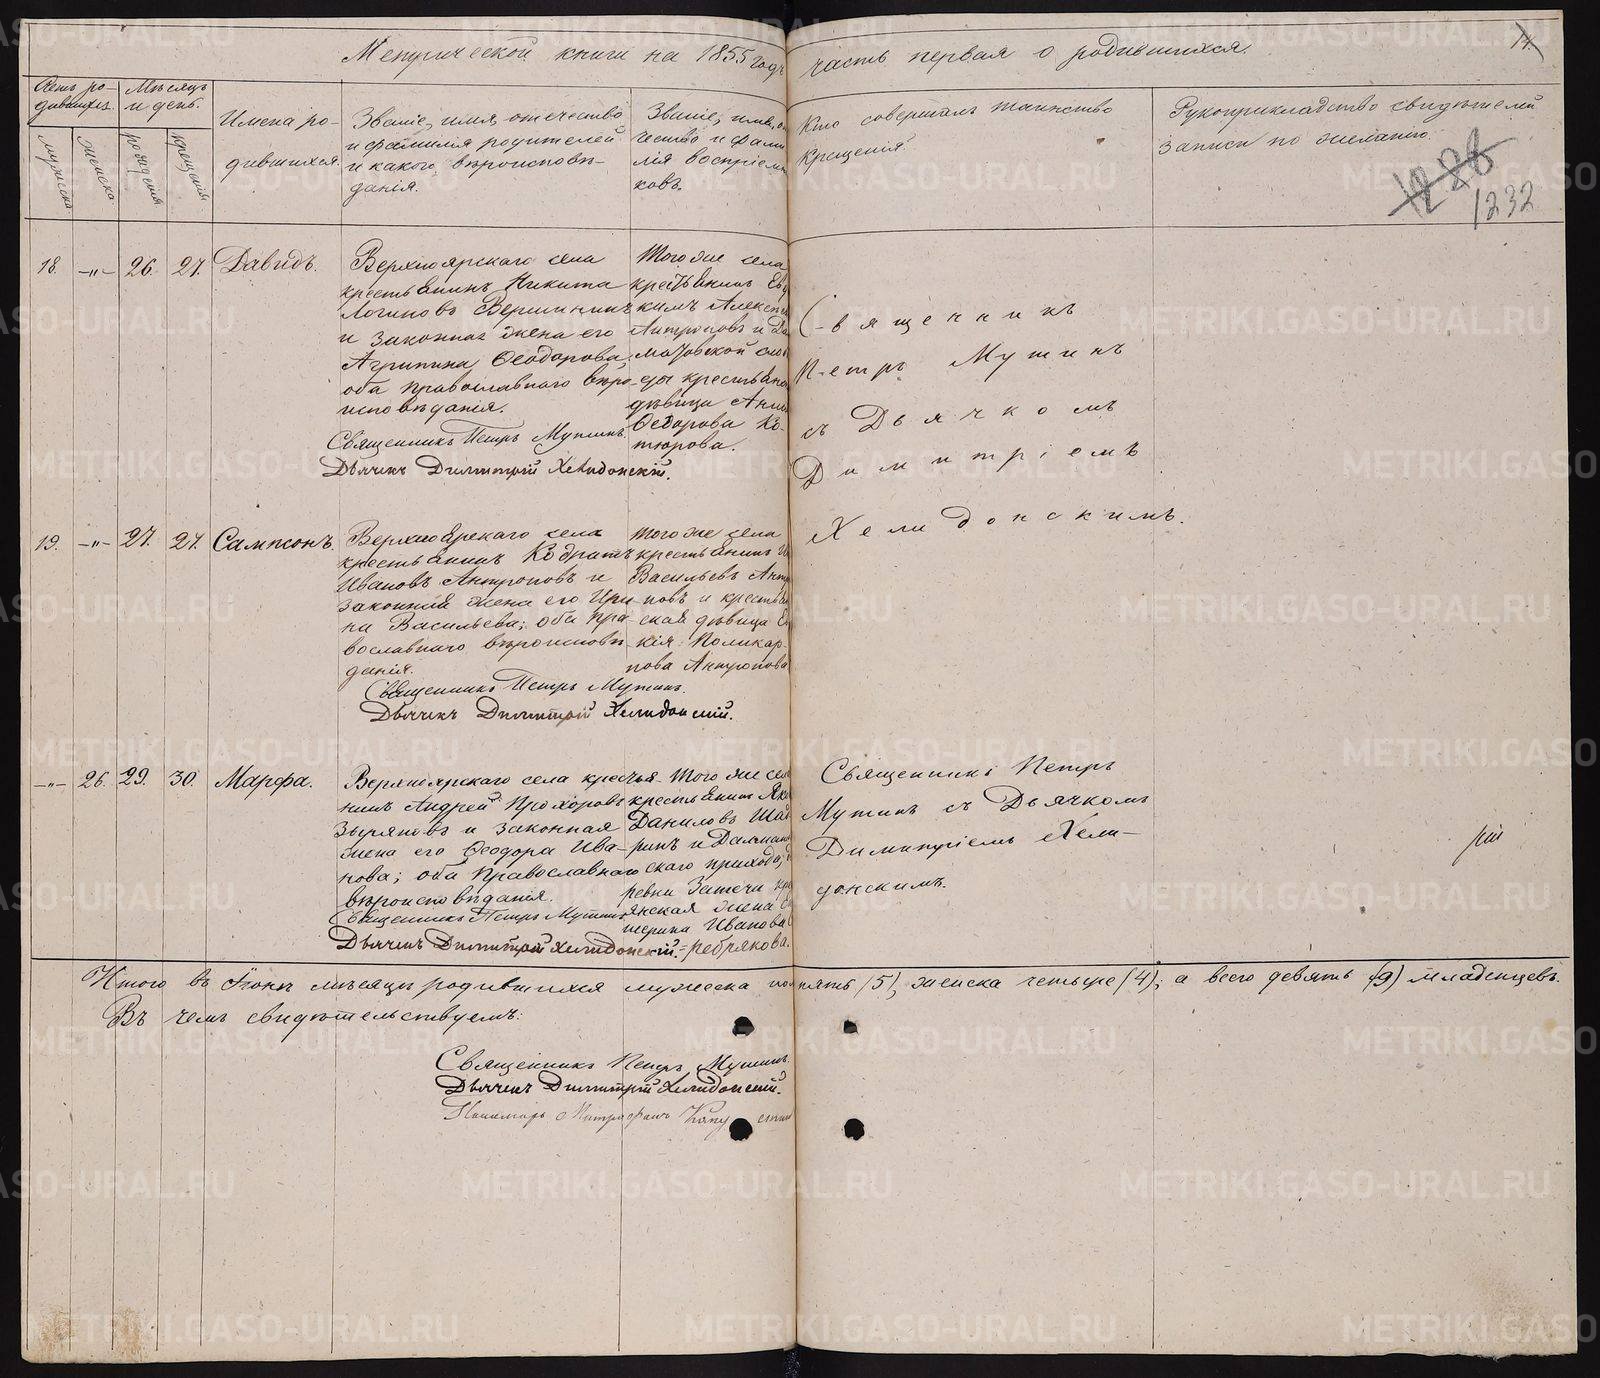 Метрической книги на 1855 годъ часть первая о родившихся.
Счетъ родившихся.
Мѣсяцъ и день.
мужеска
женска
рожденія
крещенія
Имена родившихся.
Званіе, имя, отечество
и фамилія родителей
и какого вѣроисповѣ-
данія.
Званіе, имя, о
чество и фами
лія воспріемн
ковъ.
Кто совершалъ таинство
крещенія.
Рукоприкладство свидѣтелей
записи по желанію.
1228
1232
18. -„- 26. 27. Давидъ.
Верхноярскаго села
крестьянинъ Никита
Логиновъ Вершининъ
и законная жена его
Агрипина Ѳеодорова,
оба православнаго вѣро-
исповѣданія.
Священникъ Петръ Мутинъ.
Дьячекъ Димитрій Хелидонскій.
Того же села
крестьянинъ Ев
кимъ Алексѣ
Антроповъ и Да
матовской сло
ды крестьянс
дѣвица Анна
Ѳедорова Ко-
тюрова.
Священникъ
Петръ Мутинъ
съ Дьячкомъ
Димитріемъ
Хелидонскимъ.
19. -„- 27. 27. Сампсонъ.
Верхноярскаго села
крестьянинъ Кодратъ
Ивановъ Антроповъ и
законная жена его Ири-
на Васильева; оба пра-
вославнаго вѣроисповѣ
данія.
Священникъ Петръ Мутинъ.
Дьячекъ Димитрій Хелидонскій.
того же села
крестьянинъ И
Васильевъ Антр
повъ и крестьян
ская дѣвица Е
кія Поликар-
пова Антропова
-„- 26. 29. 30. Марфа.
Верхноярскаго села кресть-
нинъ Андрей Прохоровъ
Зыряновъ и законная
жена его Ѳеодора Ива-
нова; оба Православнаго
вѣроисповѣданія.
Священникъ Петръ Мутинъ
Дьячекъ Димитрій Хелидонскій.
того же сел
крестьянинъ Яко
Даниловъ Шав
ринъ и Далмат
скаго прихода, д
ревни Затечи кре
янская жена
Иванова
ребрякова.
Священникъ Петръ
Мутинъ съ Дьячкомъ
Димитріемъ Хели-
донскимъ.
Итого въ Іюнѣ мѣсяцѣ родившихся мужеска пол пять (5), женска четыре (4); а всего девять (9) младенцевъ.
Въ чемъ свидѣтельствуемъ:
Священникъ Петръ Мутинъ.
Дьячекъ Димитрій Хелидонскій.
Пономарь Митрофанъ Капу стин